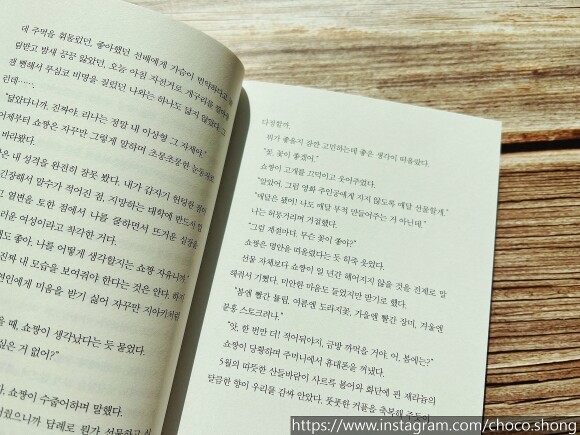 데 주먹을 휘둘렀던, 좋아했던 선배에게 가슴이 빈약하다고 놀
림받고 밤새 끙끙 앓았던, 오늘 아침 자전거로 개구리를 밟아
잼 뻔해서 무심코 비명을 질렀던 나와는 하나도 닮지 않았다. 그
런데…….
"닮았다니까. 진짜야. 리나는 정말 내 이상형 그 자체야."
어제부터 쇼짱은 자꾸만 그렇게 말하며 초롱초롱한 눈동자로
바라봤다.
은 내 성격을 완전히 잘못 봤다. 내가 갑자기
긴장해서 말수가 적어진 점, 지망하는 대학에 반드시
고 열변을 토한 점에서 나를 쿨하면서 뜨거운 심장을
러운 여성이라고 착각한 거다.
도 좋아. 나를 어떻게 생각할지는 쇼짱 자유니까."
진짜 내 모습을 보여줘야 한다는 것은 안다. 하지
연인에게 미움을 받기 싫어 자꾸만 지아키처럼
을 때, 쇼짱이 생각났다는 듯 물었다.
싶은 거 없어?"
쇼짱이 수줍어하며 말했다.
으니까 답례로 뭔가 선물하고 싶
다정할까
뭐가 좋을지 잠깐 고민하는데 좋은 생각이 떠올랐다.
"꽃. 꽃이 좋겠어."
쇼짱이 고개를 끄덕이고 웃어주었다.
"알았어. 그럼 영화 주인공에게 지지 않도록 매달 선물할게."
"매달은 됐어! 나도 매달 부적 만들어주는 거 아닌데."
나는 허둥거리며 거절했다.
"그럼 계절마다. 무슨 꽃이 좋아?"
쇼짱은 명안을 떠올렸다는 듯 히죽 웃었다.
선물 자체보다 쇼짱이 일 년간 헤어지지 않을 것을 전제로 말
해줘서 기뻤다. 미안한 마음도 들었지만 받기로 했다.
"봄엔 빨간 튤립, 여름엔 도라지꽃, 가을엔 빨간 장미, 겨울엔
분홍 스토크려나."
"앗, 한 번만 더! 적어둬야지, 금방 까먹을 거야. 어, 봄에는?"
쇼짱이 당황하며 주머니에서 휴대폰을 꺼냈다.
5월의 따뜻한 산들바람이 사르륵 불어와 화단에 핀 제라늄의
달큼한 향이 우리를 감싸 안았다. 풋풋한 커플을 축복해 주듯이
https://www.instagram.com/choco.shong